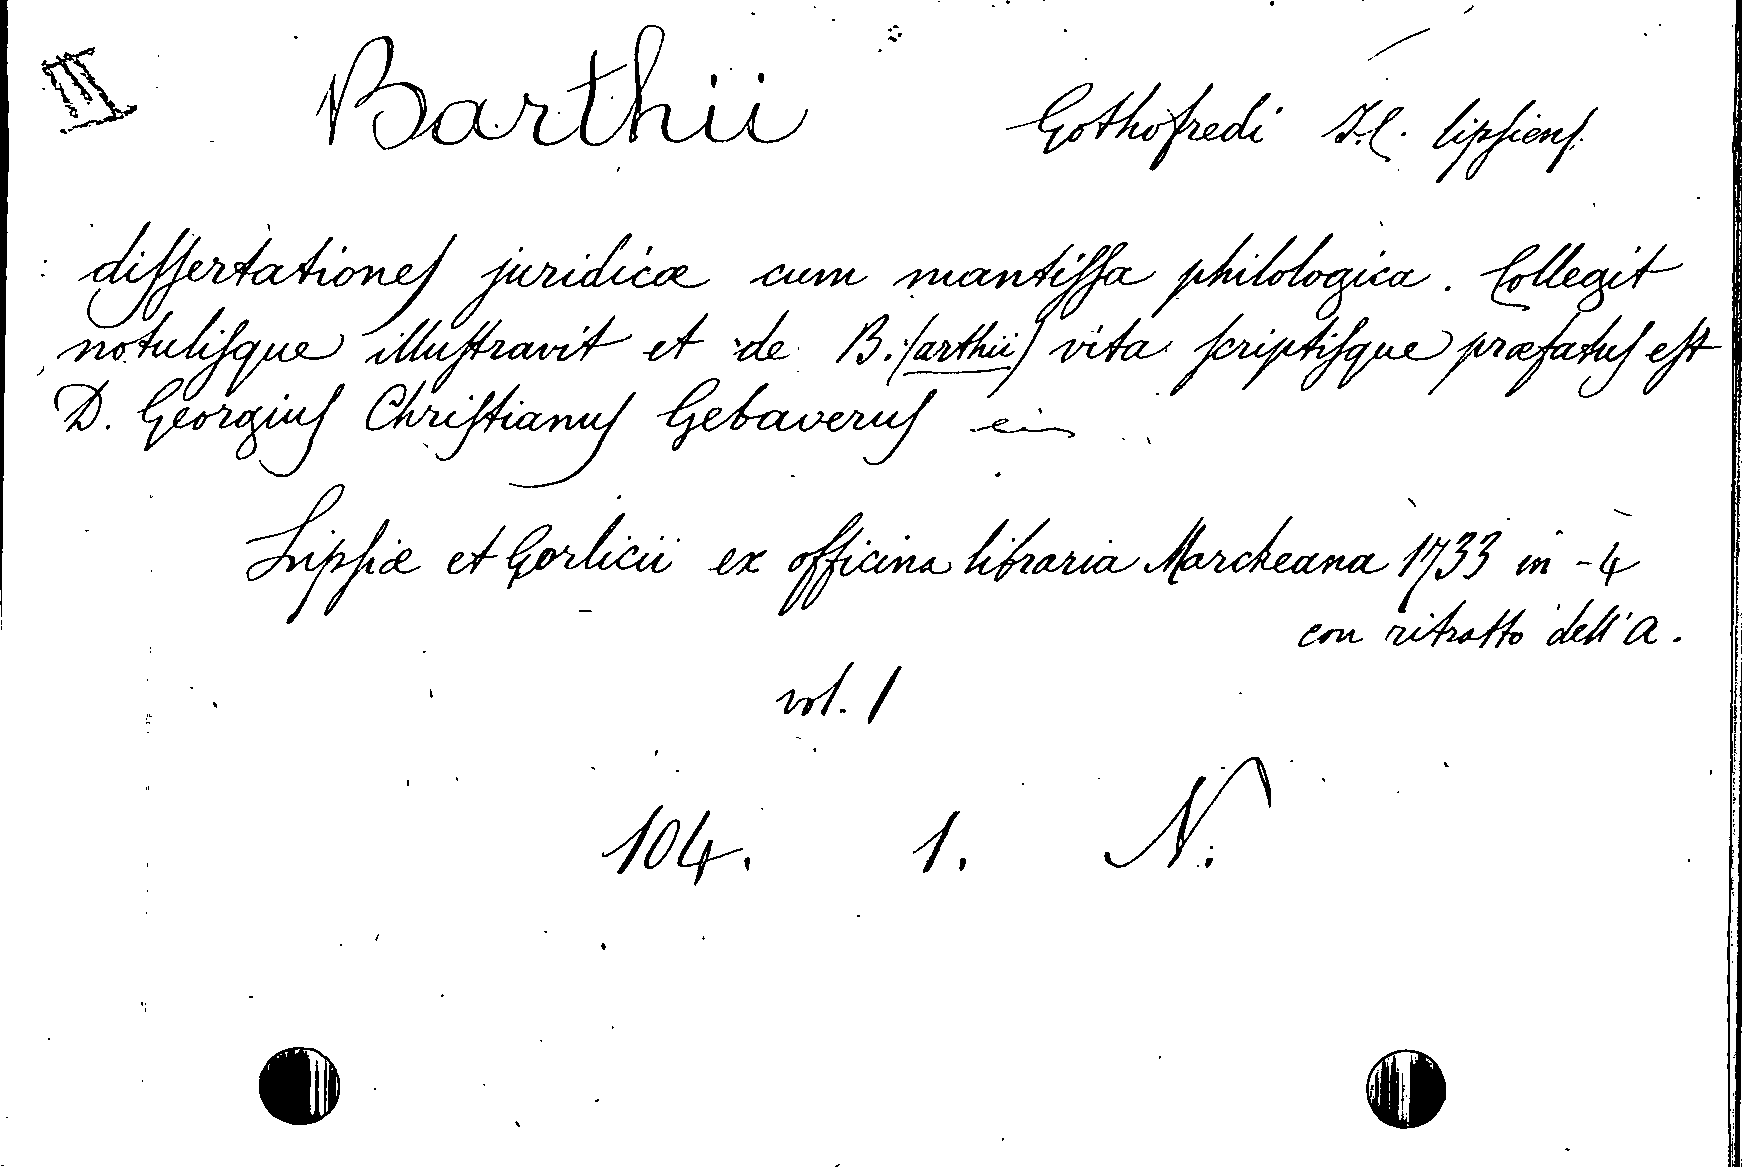 III Barthii Gothofredi I.C. lipsiens.
dissertationes juridicæ cum mantissa philologica. Collegit
notulisque illustravit et de B.(arthii) vita scriptisque præfatus est
D. Georgius Christianus Gebaverus
Lipsiæ et Gorlicii ex officina libraria Marcheana 1733 in-4
con ritratto dell'A.
vol. 1
104. 1. N.